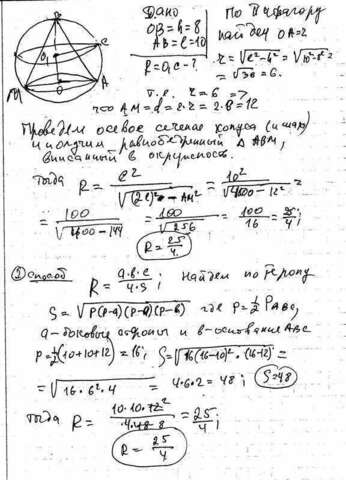 Дано
OB=h=8
AB=l=10
R=O₁C-?
По Пифагору
найдем OA=r
r=√l²-h² = √10²-8² =
= √30 = 6.
т.е. r=6 =>
AM=d=2·r=2·6=12
Проведем осевое сечение конуса (и шара)
и получим равнобедренный Δ ABM,
вписанный в окружность.
Тогда R = l² / √(2l)²-AM² = 10² / √400-12² =
= 100 / √400-144 = 100 / √256 = 100/16 = 25/4;
R = 25/4
② способ R = a·b·c / 4·S; Найдем по Герону
S=√P(P-a)(P-a)(P-b) где P=½ P
a-боковые стороны и b-основание
P=½(10+10+12)=16; S=√16(16-10)²·(16-12) =
= √16·6²·4 = 4·6·2=48; S=48
тогда R = 10·10·12 / 4·48 = 25/4;
R = 25/4